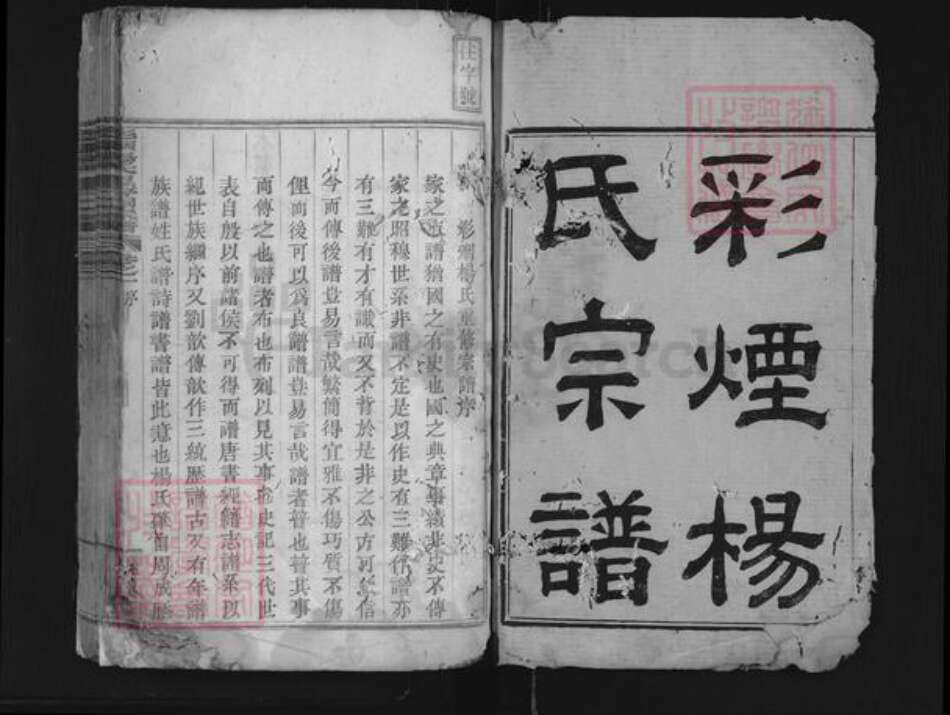 彩煙楊
氏宗譜
往字號
彩煙楊氏重修宗譜序
家之有譜猶國之有史也國之典章事績非史不傳
家之昭穆世系非譜不定是以作史有三難作譜亦
有三難有才有識而又不背於是非之公方可信
今而傳後譜豈易言哉繁簡得宜雅不傷巧質不傷
俚而後可以為良譜譜豈易言哉譜者普也普其事
而傳之也譜者布也布列以見其事也史記三代世
表自殷以前諸侯不可得而譜唐書經籍志譜系以
紀世族繼序又劉歆傳歆作三統歷譜古又有年譜
族譜姓氏譜詩譜書譜皆此意也楊氏肇自周成歷